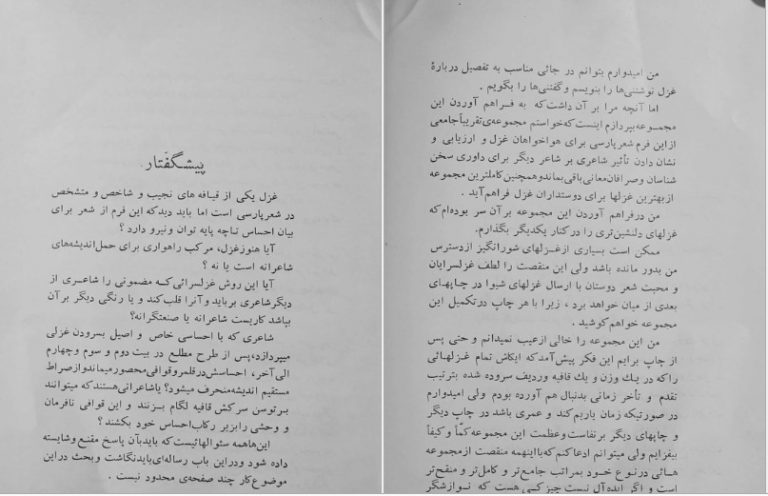 پیشگفتار
غزل یکی از قیافه های نجیب و شاخص و متشخص
در شعرپارسی است اما باید دیدکه این فرم از شعر برای
بیان احساس تاچه پایه توان و نیرو دارد ؟
آیا هنوزغزل، مرکب راهواری برای حمل‌اندیشه‌های
شاعرانه است یا نه ؟
آیا این روش غزلسرائی‌که مضمونی را شاعری از
دیگرشاعری برباید وآنرا قلب‌کند و یا رنگی دیگر برآن
بپاشد کاریست شاعرانه یا صنعتگرانه؟
شاعری که با احساسی خاص و اصیل بسرودن غزلی
میپردازدپس از طرح مطلع در بیت دوم و سوم وچهارم
الی‌آخر، احساسش‌درقلمروقوافی‌محصورمیماندوازصراط
مستقیم اندیشه‌منحرف میشود؟ یاشاعرانی‌هستندکه میتوانند
برتوسن سرکش قافیه لگام بزنند و این قوافی نافرمان
و وحشی رابزیر رکاب‌احساس خود بکشند ؟
این‌هاهمه سئوالهائیست که بایدبآن پاسخ مقنع وشایسته
داده شود ودراین باب رساله‌ای‌بایدنگاشت وبحث دراین
موضوع‌کار چند صفحه‌ی محدود نیست .
من امیدوارم بتوانم در جائی مناسب به تفصیل دربارهٔ
غزل نوشتنی‌ها را بنویسم وگفتنی‌ها را بگویم .
اما آنچه مرا بر آن داشت‌که به فراهم آوردن این
مجموعه‌بپردازم اینست‌که‌خواستم مجموعه‌ی‌تقریباًجامعی
ازاین فرم شعرپارسی برای هواخواهان غزل و ارزیابی و
نشان دادن تأثیر شاعری بر شاعر دیگر برای داوری سخن
شناسان وصرافان‌معانی‌باقی‌بماندوهمچنین‌کاملترین مجموعه
ازبهترین غزلها برای دوستداران غزل فراهم‌آید .
من درفراهم آوردن این مجموعه برآن سر بوده‌ام‌که
غزلهای دلنشین‌تری را درکنار یکدیگر بگذارم.
ممکن است بسیاری ازغزلهای شورانگیز ازدسترس
من بدور مانده باشد ولی این منقصت را لطف غزلسرایان
و محبت شعر دوستان با ارسال غزلهای شیوا در چاپهای
بعدی از میان خواهد برد ، زیرا با هر چاپ درتکمیل این
مجموعه خواهم‌کوشید .
من این مجموعه را خالی ازعیب نمیدانم و حتی پس
از چاپ برایم این فکر پیش‌آمدکه ایکاش تمام غزلهائی
راکه در یك وزن و یك قافیه وردیف سروده شده بترتیب
تقدم و تأخر زمانی بدنبال هم آورده بودم ولی امیدوارم
در صورتیکه زمان یاریم‌کند و عمری باشد در چاپ دیگر
و چاپهای دیگر برنفاست‌وعظمت این مجموعه‌کمّاً وکیفاً
بیفزایم ولی میتوانم ادعاکنم‌که بااینهمه منقصت ازمجموعه
هائی‌درنوع خودبمراتب جامع‌تر و کامل‌تر و منقح‌تر
است و اگر ایده‌آل نیست چیزکسی هست که نوازشگر